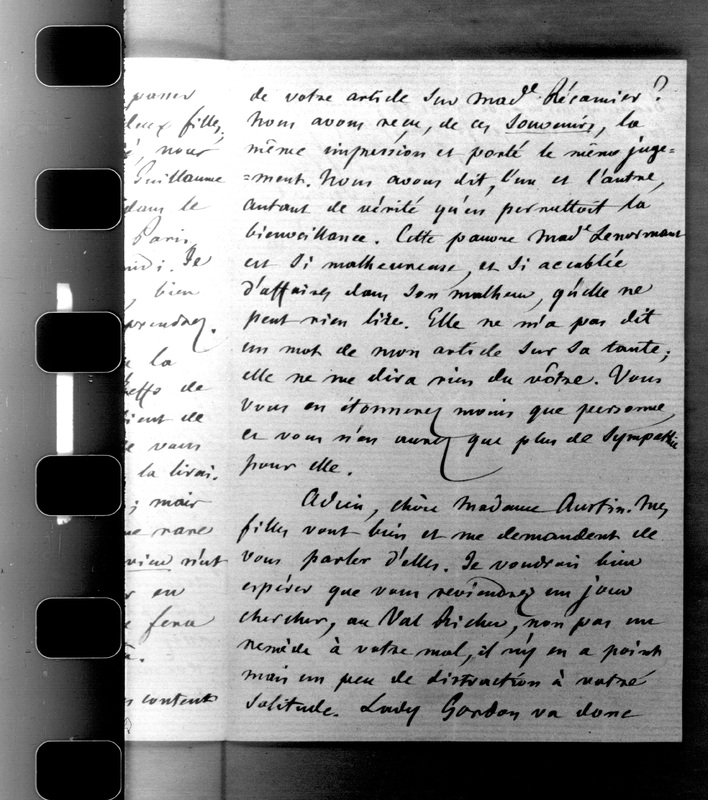 passer
deux filles,
nour
Guillaume
dans le
Paris,
midi. Je
bien
prendrez.
la
effs de
tient de
vous
la livrai.
; mais
ne rare
vieux n'ent
en
fera
content
de votre article sur Mad.le Récamier ?
Nous avons reçu, de ces souvenirs, la
même impression et porté le même juge=
=ment. Nous avons dit, l'un et l'autre,
autant de vérité qu'en permettoit la
bienveillance. Cette pauvre Mad.e Lenormant
est si malheureuse, et si accablée
d'affaires dans son malheur, qu'elle ne
peut rien lire. Elle ne m'a pas dit
un mot de mon article sur sa tante ;
elle ne me dira rien du vôtre. Vous
vous en étonnerez moins que personne,
et vous n'en aurez que plus de sympathie
pour elle.
Adieu, chère Madame Austin. Mes
filles vont bien et me demandent de
vous parler d'elles. Je voudrais bien
espérer que vous reviendrez un jour
chercher, au Val Richer, non pas un
remède à votre mal, il n'y en a point
mais un peu de distraction à votre
solitude. Lady Gordon va donc